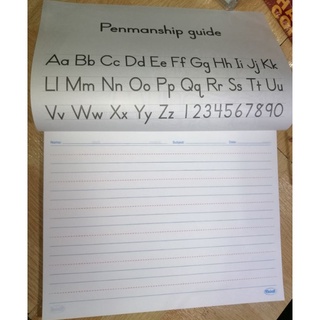 Penmanship guide
Aa Bb Cc Dd Ee Ff Gg Hh Ii Jj Kk
Ll Mm Nn Oo Pp Qq Rr Ss Tt Uu
Vv Ww Xx Yy Zz 1234567890
Name School Date